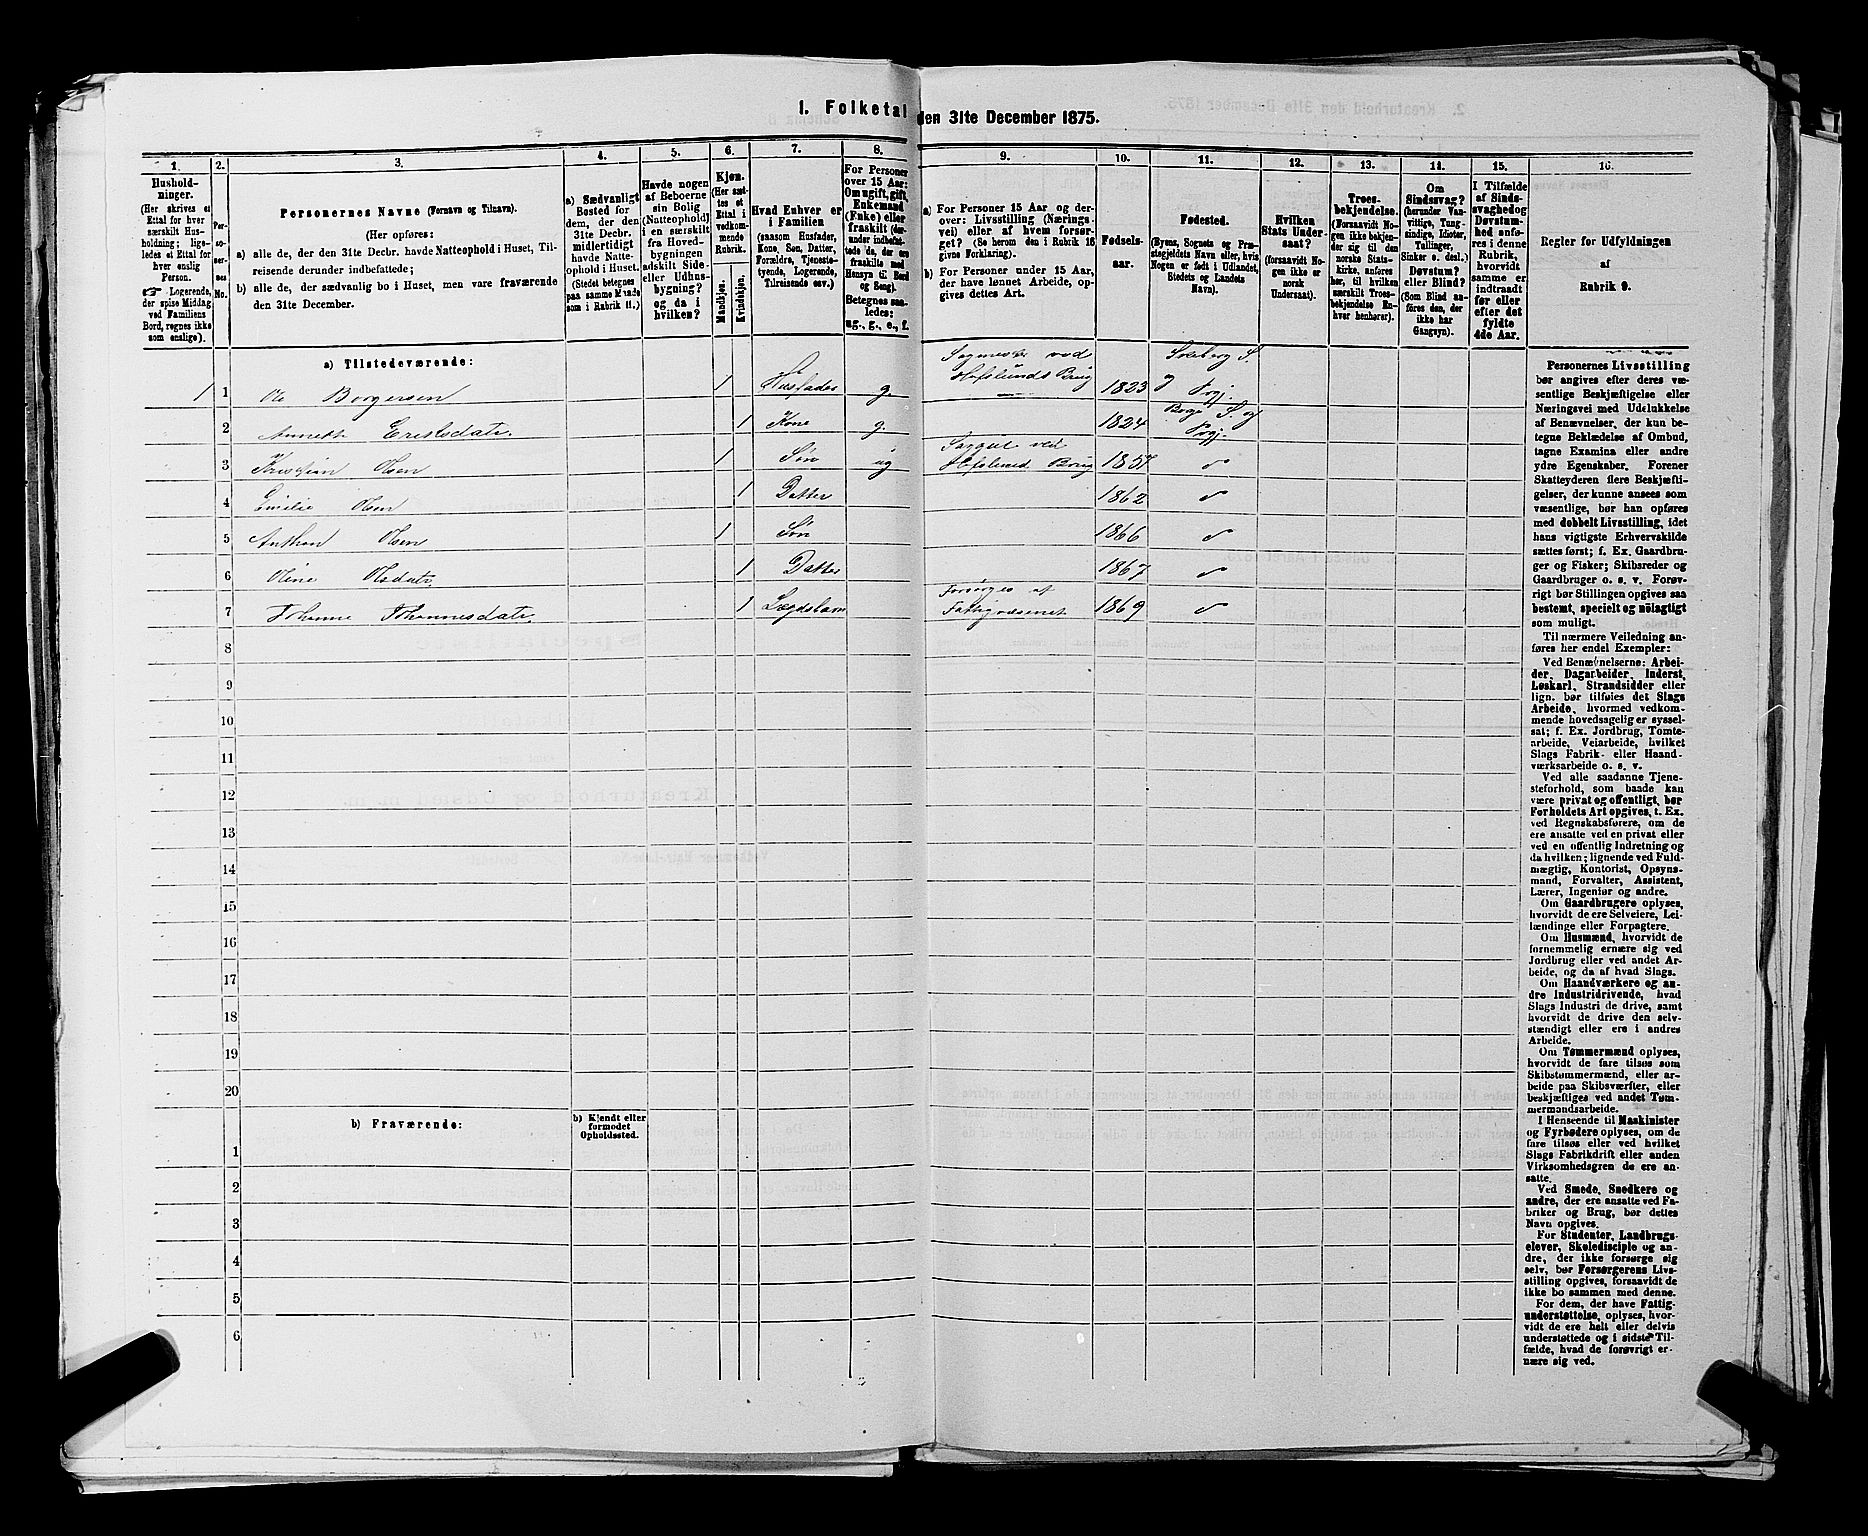 1. Folketal den 31te December 1875.
1.
Hushold-
ninger.
(Her skrives et
Ettal for hver
særskilt Hus-
holdning; lige-
ledes et Ettal for
hver enslig
Person.
Logerende,
der spise Middag
ved Familiens
Bord, regnes ikke
som enslige).
2.
Per-
so-
ner-
nes
No.
3.
Personernes Navne (Fornavn og Tilnavn).
(Her opføres:
a) alle de, der den 31te Decbr. havde Natteophold i Huset, Til-
reisende derunder indbefattede;
b) alle de, der sædvanlig bo i Huset, men vare fraværende
den 31te December.
4.
a) Sædvanligt
Bosted for
dem, der den
31te Decbr.
midlertidigt
havde Natte-
ophold i Huset.
(Stedet betegnes
paa samme Maade
som i Rubrik 11.)
5.
Havde nogen
af Beboerne
sin Bolig
(Natteophold)
i en særskilt
fra Hoved-
bygningen
adskilt Side-
eller Udhus-
bygning?
og da i
hvilken?
6.
Kjøn.
(Her sæt-
tes et
Ettal i
vedkom-
mende
Rubrik.
Mandkjøn.
Kvindekjøn.
7.
Hvad Enhver er
i Familien
(saasom Husfader,
Kone, Søn, Datter,
Forældre, Tjeneste-
tyende, Logerende,
Tilreisende osv.)
8.
For Personer
over 15 Aar:
Om ugift, gift,
Enkemand
(Enke) eller
fraskilt (der-
under indbefat-
tede de, der ere
fraskilte med
Hensyn til Bord
og Seng).
Betegnes saa-
ledes:
ug., g., e., f.
9.
a) For Personer 15 Aar og der-
over: Livsstilling (Nærings-
vei) eller af hvem forsør-
get? (Se herom den i Rubrik 16
givne Forklaring).
b) For Personer under 15 Aar,
der have lønnet Arbeide, op-
gives dettes Art.
10.
Fødsels-
aar.
11.
Fødested.
(Byens, Sognets og Præ-
stegjeldets Navn eller, hvis
Nogen er født i Udlandet,
Stedets og Landets
Navn).
12.
Hvilken
Stats Under-
saat?
(forsaavidt No-
gen ikke er
norsk
Undersaat).
13.
Troes-
bekjendelse.
(Forsaavidt No-
gen ikke bekjen-
der sig til den
norske Stats-
kirke, anføres
her, til hvilken
særskilt Troes-
bekjendelse En-
hver henhører).
14.
Om
Sindssvag?
(herunder Van-
vittige, Tung-
sindige, Idioter,
Tullinger,
Sinker o. desl.)
Døvstum?
eller Blind?
(Som Blind an-
føres den, der
ikke har
Gangsyn).
15.
I Tilfælde
af Sinds-
svaghed og
Døvstum-
hed anfø-
res i denne
Rubrik,
hvorvidt
samme er
indtraadt
før eller
efter det
fyldte
4de Aar.
16.
Regler for Udfyldningen
af
Rubrik 9.
a) Tilstedeværende:
1 1 Ole Borgersen 1 Husfader g. Sagmester ved Hafslunds Brug 1823 Skjeberg S. og Prgj.
2 Annette Eriksdatr. 1 Kone g. 1824 Borge S. og Prgj.
3 Kristian Olsen 1 Søn ug ved Hafslund Brug 1857
4 Emilie Olsen 1 Datter 1862
5 Anthon Olsen 1 Søn 1866
6 Oline Olsdatr. 1 Datter 1867
7 Johanne Johannesdatr. 1 Lægdsbarn Forsørges af Fattigvæsenet 1869
8
9
10
11
12
13
14
15
16
17
18
19
20
b) Fraværende:
b) Kjendt eller
formodet
Opholdssted.
1
2
3
4
5
6
Personernes Livsstilling
bør angives efter deres væ-
sentlige Beskjæftigelse eller
Næringsvei med Udelukkelse
af Benævnelser, der kun be-
tegne Beklædelse af Ombud,
tagne Examina eller andre
ydre Egenskaber. Forener
Skatteyderen flere Beskjæfti-
gelser, der kunne ansees som
væsentlige, bør han opføres
med dobbelt Livsstilling, idet
hans vigtigste Erhvervskilde
sættes først; f. Ex. Gaardbru-
ger og Fisker; Skibsreder og
Gaardbruger o. s. v. Forøv-
rigt bør Stillingen opgives saa
bestemt, specielt og nøiagtigt
som muligt.
Til nærmere Veiledning an-
føres her endel Exempler:
Ved Benævnelserne: Arbei-
der, Dagarbeider, Inderst,
Løskarl, Strandsidder eller
lign. bør tilføies det Slags
Arbeide, hvormed vedkom-
mende hovedsagelig er syssel-
sat; f. Ex. Jordbrug, Tomte-
arbeide, Veiarbeide, hvilket
Slags Fabrik- eller Haand-
værksarbeide o. s. v.
Ved alle saadanne Tjene-
steforhold, som baade kan
være privat og offentligt, bør
Forholdets Art opgives, t. Ex.
ved Regnskabsførere, om de
ere ansatte ved en privat eller
ved en offentlig Indretning og
da hvilken; lignende ved Fuld-
mægtig, Kontorist, Opsyns-
mand, Forvalter, Assistent,
Lærer, Ingeniør og andre.
Om Gaardbrugere oplyses,
hvorvidt de ere Selveiere, Lei-
lændinge eller Forpagtere.
Om Husmænd, hvorvidt de
fornemmelig ernære sig ved
Jordbrug eller ved andet Ar-
beide, og da af hvad Slags.
Om Haandværkere og an-
dre Industridrivende, hvad
Slags Industri de drive, samt
hvorvidt de drive den selv-
stændigt eller ere i andres
Arbeide.
Om Tømmermænd oplyses,
hvorvidt de fare tilsøs som
Skibstømmermænd, eller ar-
beide paa Skibsværfter, eller
beskjæftiges ved andet Tøm-
mermandsarbeide.
I Henseende til Maskinister
og Fyrbødere oplyses, om de
fare tilsøs eller ved hvilket
Slags Fabrikdrift eller anden
Virksomhedsgren de ere an-
satte.
Ved Smede, Snedkere og
andre, der ere ansatte ved Fa-
briker og Brug, bør dettes
Navn opgives.
For Studenter, Landbrugs-
elever, Skoledisciple og an-
dre, der ikke forsørge sig
selv, bør Forsørgerens Livs-
stilling opgives, forsaavidt de
ikke bo sammen med denne.
For dem, der have Fattig-
understøttelse, oplyses, hvor-
vidt de ere helt eller delvis
understøttede og i sidste Til-
fælde, hvad de forøvrigt er-
nære sig ved.